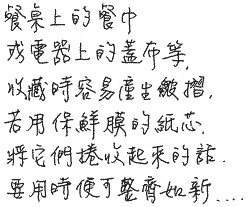 餐桌上的餐巾
或電器上的蓋布等,
收藏時容易產生皺摺,
若用保鮮膜的紙芯,
將它們捲收起來的話,
要用時便可整齊如新....